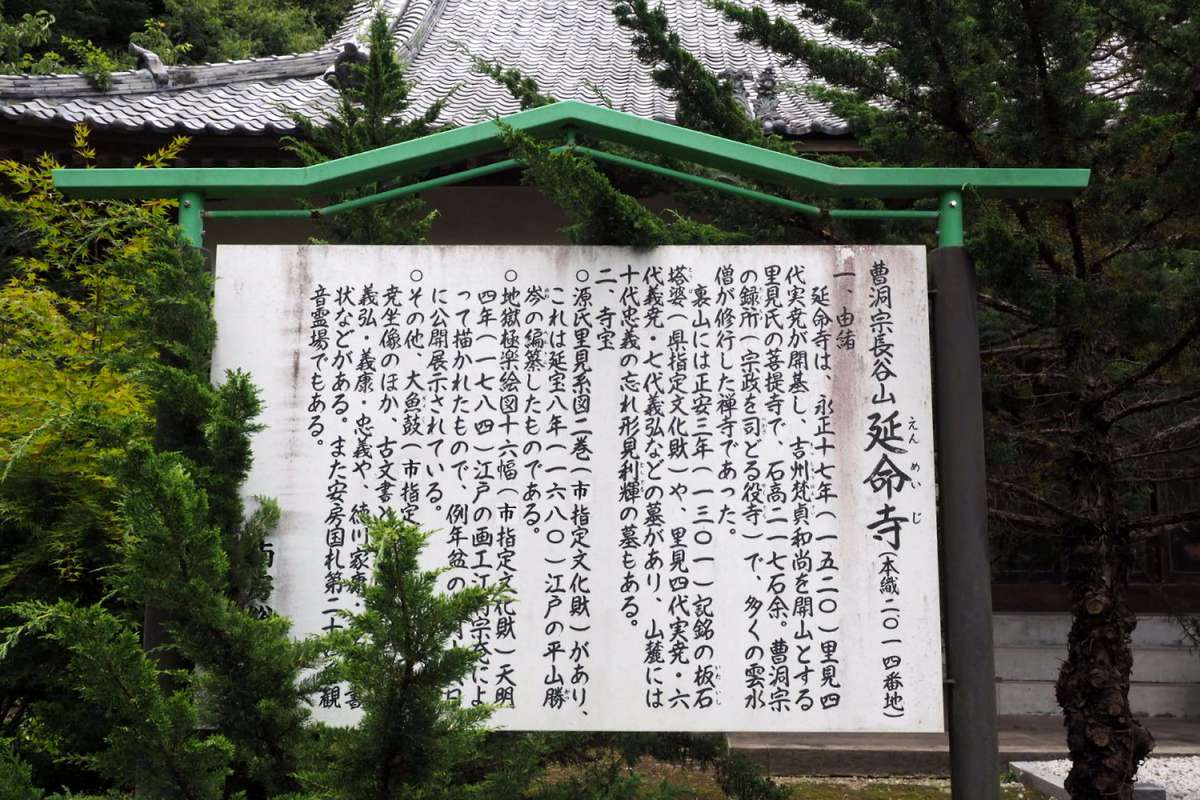 曹洞宗長谷山 延命寺(本織二〇一四番地)
えんめいじ
一、由緒
延命寺は、永正十七年(一五二〇)里見四
代実尭が開基し、吉州梵貞和尚を開山とする
里見氏の菩提寺で、石高二一七石余。曹洞宗
の録所(宗政を司どる役寺)で、多くの雲水
僧が修行した禅寺であった。
裏山には正安三年(一三〇一)記銘の板石
塔婆(県指定文化財)や、里見四代実尭・六
代義尭・七代義弘などの墓があり、山麓には
十代忠義の忘れ形見利輝の墓もある。
二、寺宝
○源氏里見系図二巻(市指定文化財)があり、
これは延宝八年(一六八〇)江戸の平山勝
岑の編纂したものである。
○地獄極楽絵図十六幅(市指定文化財)天明
四年(一七八四)江戸の画工江 宗 によ
って描かれたもので、例年盆の
に公開展示されている。
○その他、大魚鼓(市指定
尭坐像のほか、古文書
義弘・義康・忠義や、徳川家康・ 書
状などがある。また安房国札第二十 観
音霊場でもある。